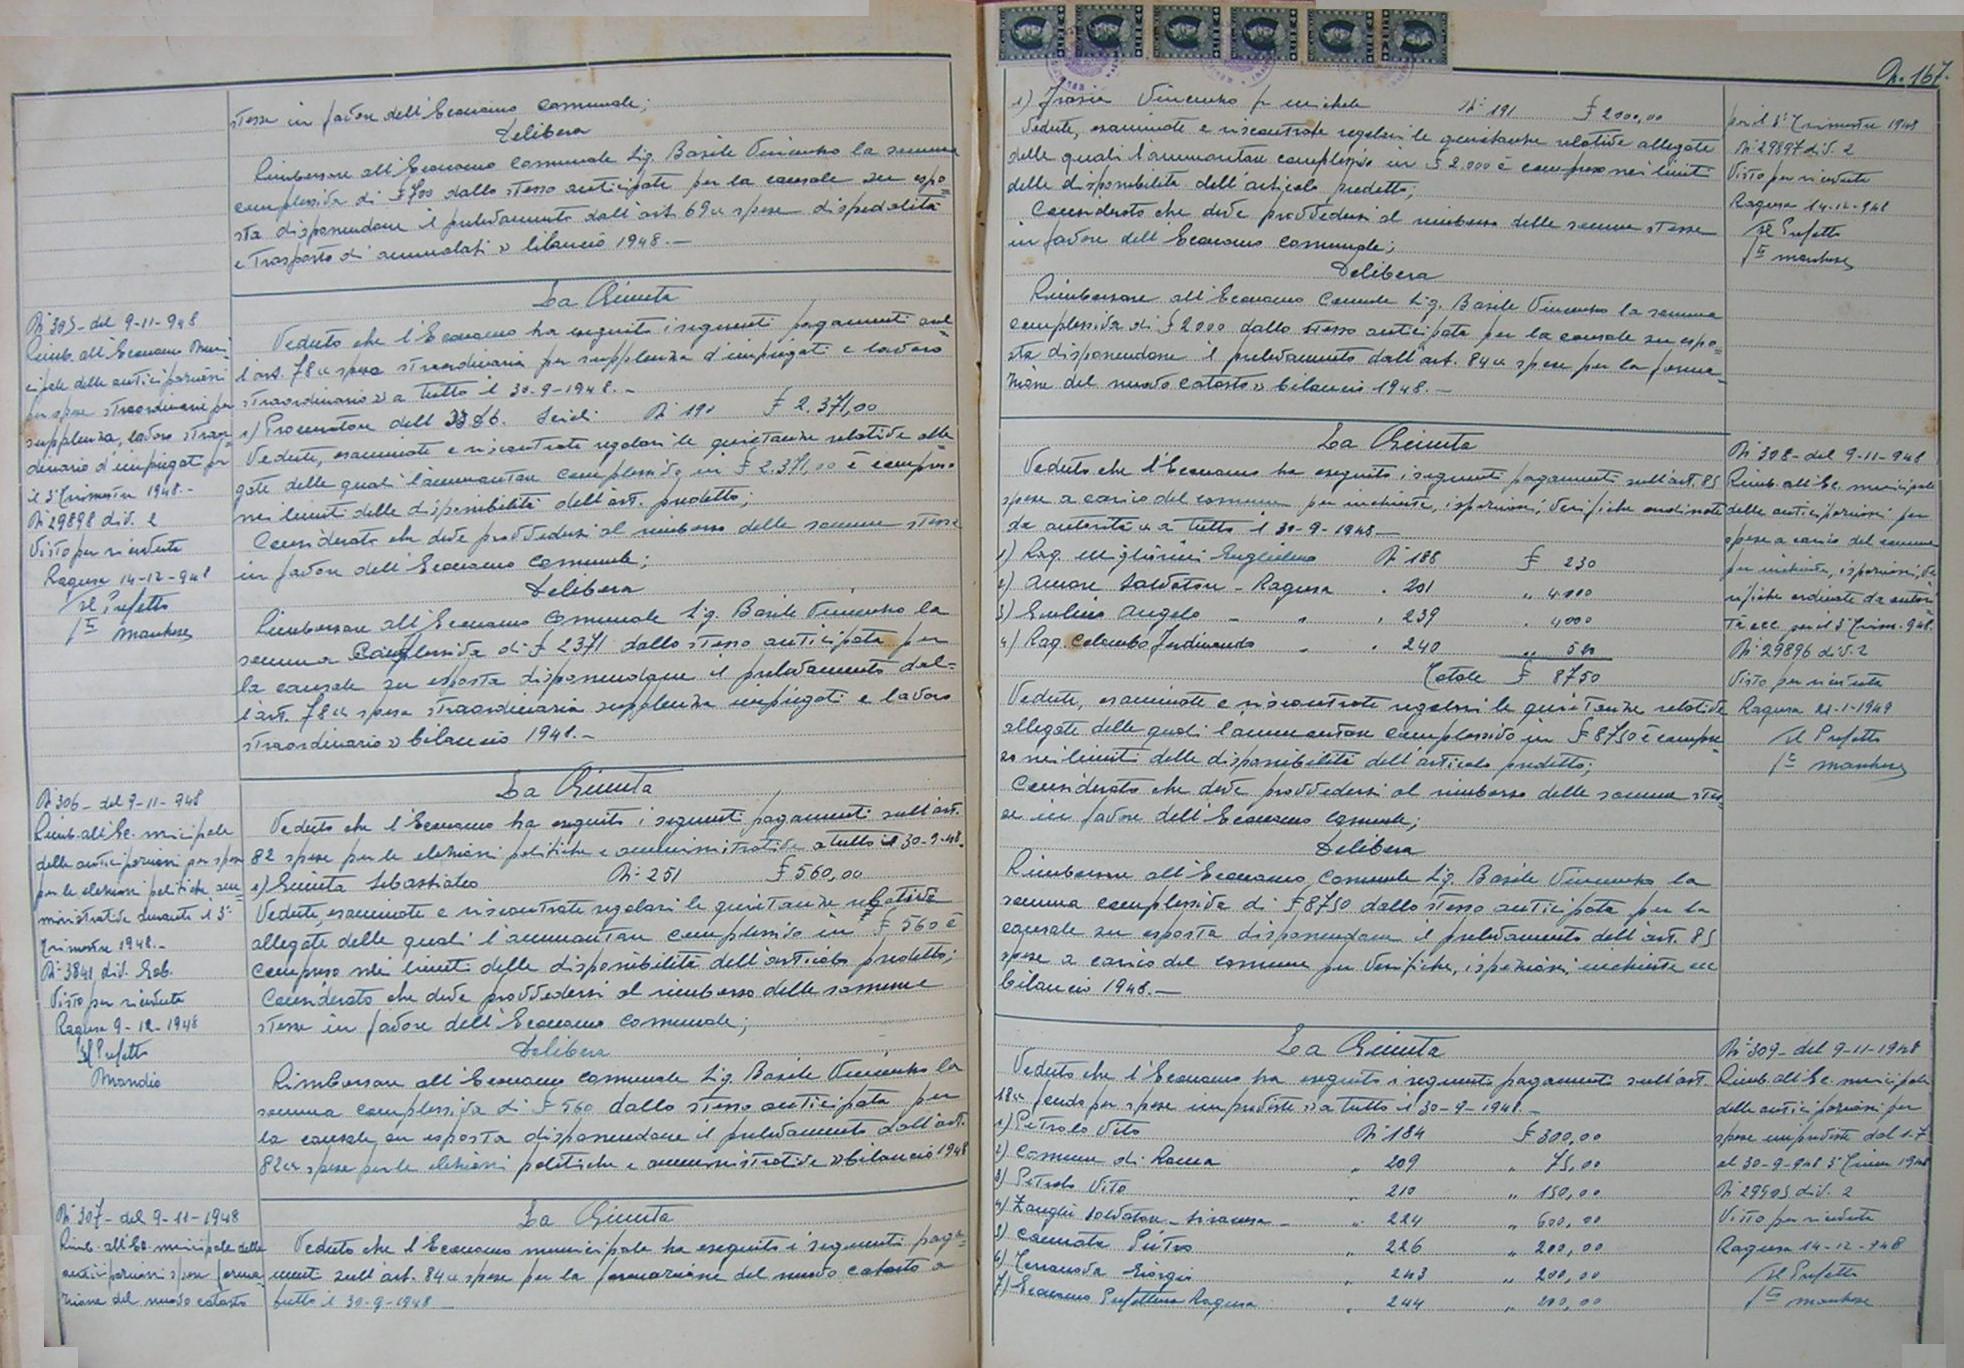 stesse in favore dell'Economo Comunale;
Delibera
Rimborsare all'Economo Comunale Sig. Basile Vincenzo la somma
complessiva di £ 700 dallo stesso anticipate per la causale su espo=
sta disponendone il prelevamento dall'art. 69 "spese spedalità
e trasporto di ammalati" bilancio 1948.—
N° 305 - del 9-11-948
Rimb. all'Economo Muni=
cipale delle anticipazioni
per spese straordinarie per
supplenza, lavoro straor=
dinario d'impiegati per
il 3° Trimestre 1948.-
N° 29898 div. 2
Visto per ricevuta
Ragusa 14-12-948
Il Prefetto
La Giunta
Veduto che l'Economo ha eseguito i seguenti pagamenti sul=
l'art. 78 "spesa straordinaria per supplenza d'impiegati e lavoro
straordinario" a tutto il 30-9-1948.-
1) Procuratore dell' N° 190 £ 2.371,00
Vedute, esaminate e riscontrate regolari le quietanze relative alle=
gate delle quali l'ammontare complessivo in £ 2.371,00 è compreso
nei limiti delle disponibilità dell'art. predetto;
Considerato che deve provvedersi al rimborso delle somme stesse
in favore dell'Economo Comunale;
Delibera
Rimborsare all'Economo Comunale Sig. Basile Vincenzo la
somma complessiva di £ 2371 dallo stesso anticipata per
la causale su esposta disponendone il prelevamento dal=
l'art. 78 "spesa straordinaria supplenza impiegati e lavoro
straordinario" bilancio 1948.-
N° 306 - del 9-11-948
Rimb. all'Ec. municipale
delle anticipazioni per spese
per le elezioni politiche am=
ministrative durante il 3°
Trimestre 1948.-
N° 3841 div. Gab.
Visto per ricevuta
Ragusa 9-12-1948
Il Prefetto
La Giunta
Veduto che l'Economo ha eseguito i seguenti pagamenti sull'art.
82 spese per le elezioni politiche e amministrative a tutto il 30-9-48.
1) Giunta Sebastiano N° 251 £ 560,00
Vedute, esaminate e riscontrate regolari le quietanze relative
allegate delle quali l'ammontare complessivo in £ 560 è
compreso nei limiti delle disponibilità dell'articolo predetto;
Considerato che deve provvedersi al rimborso delle somme
stesse in favore dell'Economo Comunale;
Delibera
Rimborsare all'Economo Comunale Sig. Basile Vincenzo la
somma complessiva di £ 560 dallo stesso anticipata per
la causale su esposta disponendone il prelevamento dall'art.
82 "spese per le elezioni politiche e amministrative" bilancio 1948
N° 307 - del 9-11-1948
Rimb. all'Ec. municipale delle
anticipazioni spese forma=
zione del nuovo catasto
La Giunta
Veduto che l'Economo municipale ha eseguito i seguenti paga=
menti sull'art. 84 "spese per la formazione del nuovo catasto a
tutto il 30-9-1948 —
N. 167.
1) Vincenzo fu Michele N° 191 £ 2000,00
Vedute, esaminate e riscontrate regolari le quietanze relative allegate
delle quali l'ammontare complessivo in £ 2.000 è compreso nei limiti
delle disponibilità dell'articolo predetto;
Considerato che deve provvedersi al rimborso delle somme stesse
in favore dell'Economo Comunale;
Delibera
Rimborsare all'Economo Comunale Sig. Basile Vincenzo la somma
complessiva di £ 2000 dallo stesso anticipata per la causale su espo=
sta disponendone il prelevamento dall'art. 84 "spese per la forma=
zione del nuovo catasto" bilancio 1948.-
per il 3° Trimestre 1948
N° 29897 div. 2
Visto per ricevuta
Ragusa 14-12-948
Il Prefetto
La Giunta
Veduto che l'Economo ha eseguito i seguenti pagamenti sull'art. 85
spese a carico del comune per inchieste, ispezioni, verifiche ordinate
da autorità " a tutto il 30-9-1948—
1) Rag. Migliorini Guglielmo N° 188 £ 230
2) Amore Salvatore - Ragusa . 201 " 4000
3) Angelo - " . 239 . 4000
4) Rag. Colombo Ferdinando " . 240 " 500
Totale £ 8750
Vedute, esaminate e riscontrate regolari le quietanze relative
allegate delle quali l'ammontare complessivo in £ 8750 è compre=
so nei limiti delle disponibilità dell'articolo predetto;
Considerato che deve provvedersi al rimborso delle somme stes=
se in favore dell'Economo Comunale;
Delibera
Rimborsare all'Economo Comunale Sig. Basile Vincenzo la
somma complessiva di £ 8750 dallo stesso anticipata per la
causale su esposta disponendone il prelevamento dell'art. 85
spese a carico del comune per verifiche, ispezioni, inchieste ecc
bilancio 1948.—
N° 308 - del 9-11-948
Rimb. all'Ec. municipale
delle anticipazioni per
spese a carico del comune
per inchieste, ispezioni, ve=
rifiche ordinate da autori=
tà ecc. per il 3° Trim. 948.
N° 29896 div. 2
Visto per ricevuta
Ragusa 21-1-1949
Il Prefetto
La Giunta
Veduto che l'Economo ha eseguito i seguenti pagamenti sull'art.
18 "fondo per spese impreviste" a tutto il 30-9-1948.—
1) Petrolo Vito N° 184 £ 300,00
2) Comune di Roma " 209 " 75,00
3) Petrolo Vito " 210 " 150,00
4) Zanghi Salvatore - Siracusa - " 224 " 600,00
5) Cannata Pietro " 226 " 200,00
6) Terranova Giorgio " 243 " 200,00
7) Economo Prefettura Ragusa " 244 " 200,00
N° 309 - del 9-11-1948
Rimb. all'Ec. municipale
delle anticipazioni per
spese impreviste dal 1-7
al 30-9-948 3° Trim 1948
N° 29505 div. 2
Visto per ricevuta
Ragusa 14-12-948
Il Prefetto